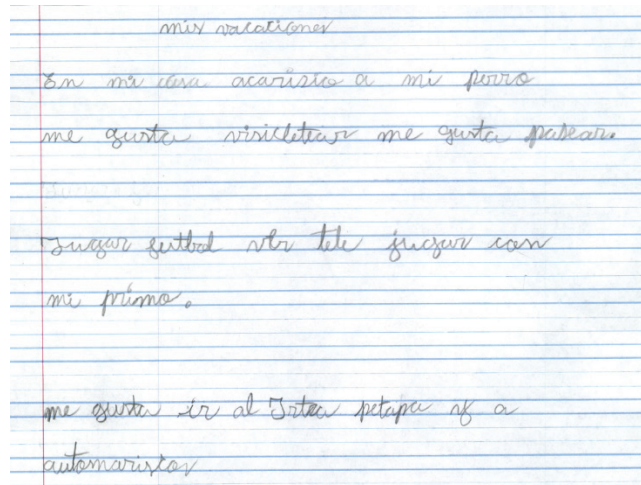 mis vacaciones
En mi casa acarisico a mi perro
me gusta visicletear me gusta pasear.
Jugar futbol ver tele jugar con
mi primo.
me gusta ir al Irtra petapa y a
automariscos